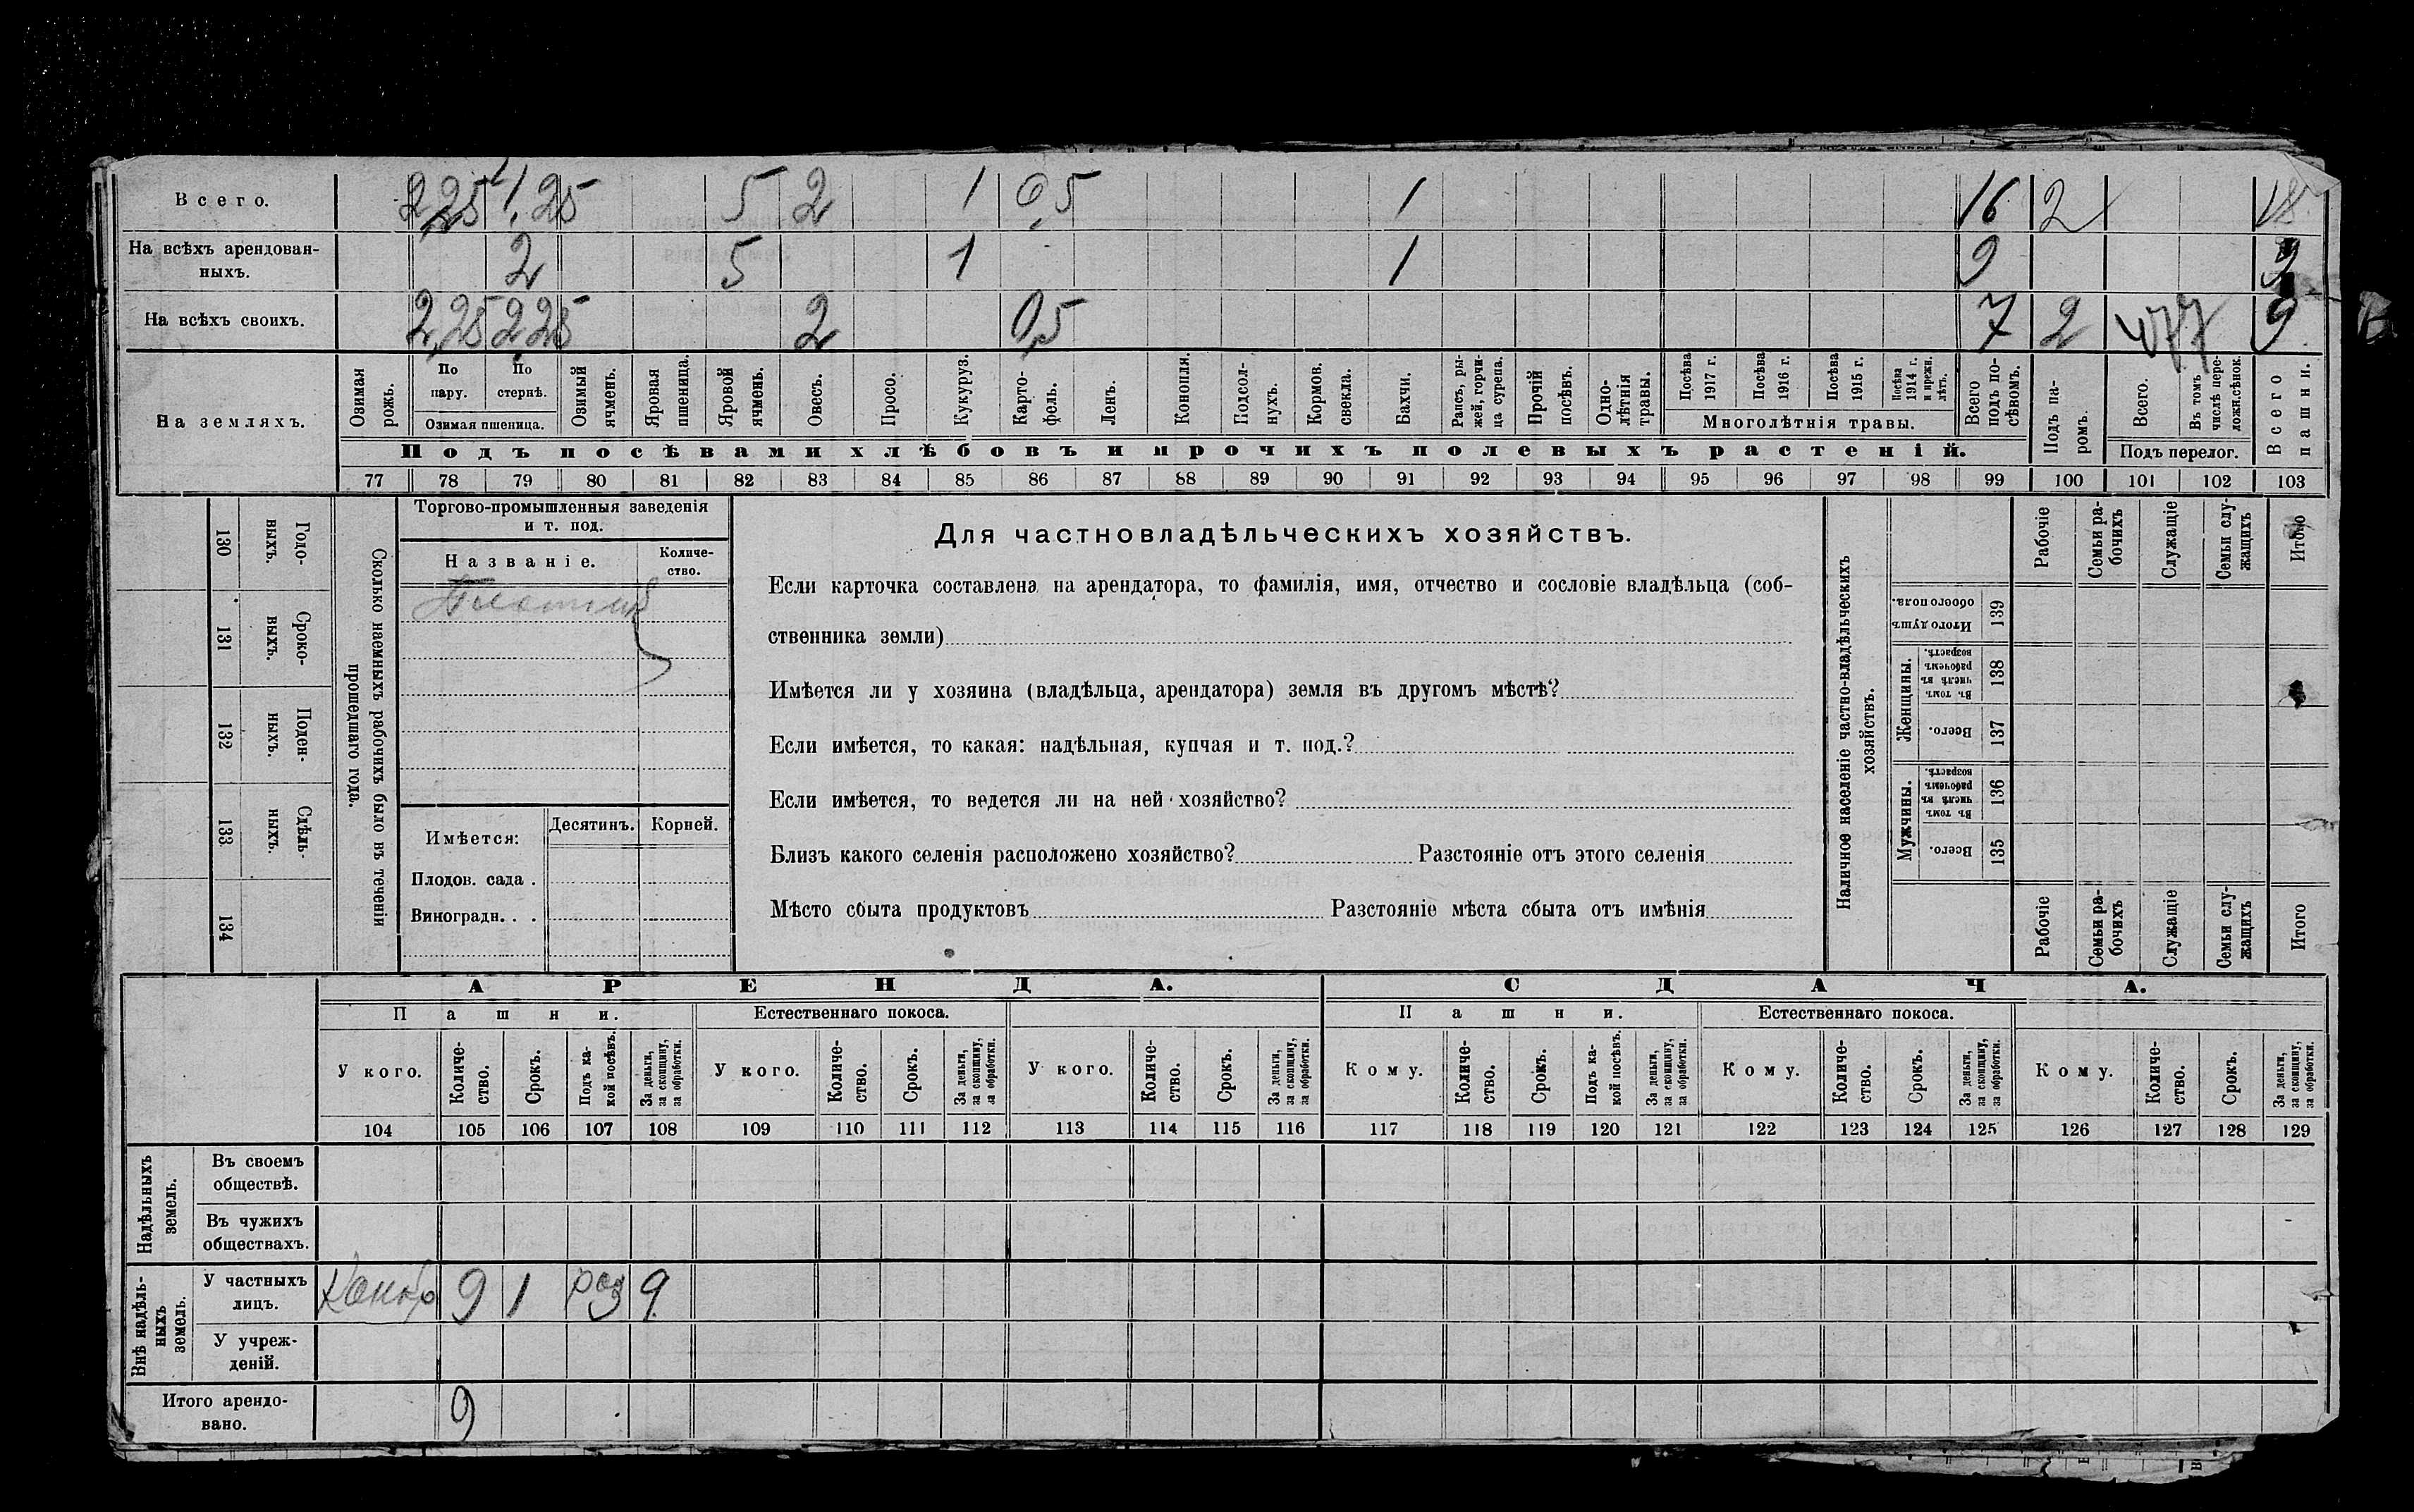 Всего. 2,25 4,25 5 2 1 0,5 1 16 2 18
На всѣхъ арендован-
ныхъ. 2 5 1 1 9 9
На всѣхъ своихъ. 2,25 2,25 2 0,5 7 2 9
На земляхъ.
Озимая рожь.
По пару.
По стернѣ.
Озимая пшеница.
Озимый ячмень.
Яровая пшеница.
Яровой ячмень.
Овесъ.
Просо.
Кукуруз.
Карто-
фель.
Ленъ.
Конопля.
Подсол-
нухъ.
Кормов. свекла.
Бахчи.
Рапсъ, ры-
жей, горчи-
ца сурепа.
Прочій посѣвъ.
Одно-
лѣтнія травы.
Посѣва 1917 г.
Посѣва 1916 г.
Посѣва 1915 г.
Посѣва 1914 г. и прежн. лѣтъ.
Многолѣтнія травы.
Всего подъ по-
сѣвомъ.
Подъ па-
ромъ.
Всего.
Въ томъ числѣ пере-
ложн.сѣнок.
Подъ перелог.
Всего пашни.
Подъ посѣвами хлѣбовъ и прочихъ полевыхъ растеній.
77 78 79 80 81 82 83 84 85 86 87 88 89 90 91 92 93 94 95 96 97 98 99 100 101 102 103
130 Годо-
выхъ.
131 Сроко-
выхъ.
132 Поден-
ныхъ.
133 Сдѣль-
ныхъ.
134
Сколько наемныхъ рабочихъ было въ теченіи
прошедшаго года.
Торгово-промышленныя заведенія
и т. под.
Названіе.
Количе-
ство.
Имѣется: Десятинъ. Корней.
Плодов. сада .
Виноградн. . .
Для частновладѣльческихъ хозяйствъ.
Если карточка составлена на арендатора, то фамилія, имя, отчество и сословіе владѣльца (соб-
ственника земли)
Имѣется ли у хозяина (владѣльца, арендатора) земля въ другомъ мѣстѣ?
Если имѣется, то какая: надѣльная, купчая и т. под.?
Если имѣется, то ведется ли на ней хозяйство?
Близъ какого селенія расположено хозяйство? Разстояніе отъ этого селенія
Мѣсто сбыта продуктовъ Разстояніе мѣста сбыта отъ имѣнія
Наличное населеніе частно-владѣльческихъ
хозяйствъ.
Рабочіе
Семьи ра-
бочихъ
Служащіе
Семьи слу-
жащихъ
Итого
Итого душъ обоего пола. 139
Женщины.
Въ томъ числѣ въ рабочемъ возрастѣ. 138
Всего. 137
Мужчины.
Въ томъ числѣ въ рабочемъ возрастѣ. 136
Всего. 135
Рабочіе
Семьи ра-
бочихъ
Служащіе
Семьи слу-
жащихъ
Итого
АРЕНДА. СДАЧА.
Пашни. Естественнаго покоса. Пашни. Естественнаго покоса.
У кого. Количе-
ство. Срокъ. Подъ ка-
кой посѣвъ. За деньги, за скопщину, за обработки.
У кого. Количе-
ство. Срокъ. За деньги, за скопщину, за обработки.
У кого. Количе-
ство. Срокъ. За деньги, за скопщину, за обработки.
Кому. Количе-
ство. Срокъ. Подъ ка-
кой посѣвъ. За деньги, за скопщину, за обработки.
Кому. Количе-
ство. Срокъ. За деньги, за скопщину, за обработки.
Кому. Количе-
ство. Срокъ. За деньги, за скопщину, за обработки.
104 105 106 107 108 109 110 111 112 113 114 115 116 117 118 119 120 121 122 123 124 125 126 127 128 129
Надѣльныхъ земель.
Въ своемъ
обществѣ.
Въ чужихъ
обществахъ.
Внѣ надѣль-
ныхъ земель.
У частныхъ
лицъ. 9 1 9
У учреж-
деній.
Итого арендо-
вано. 9